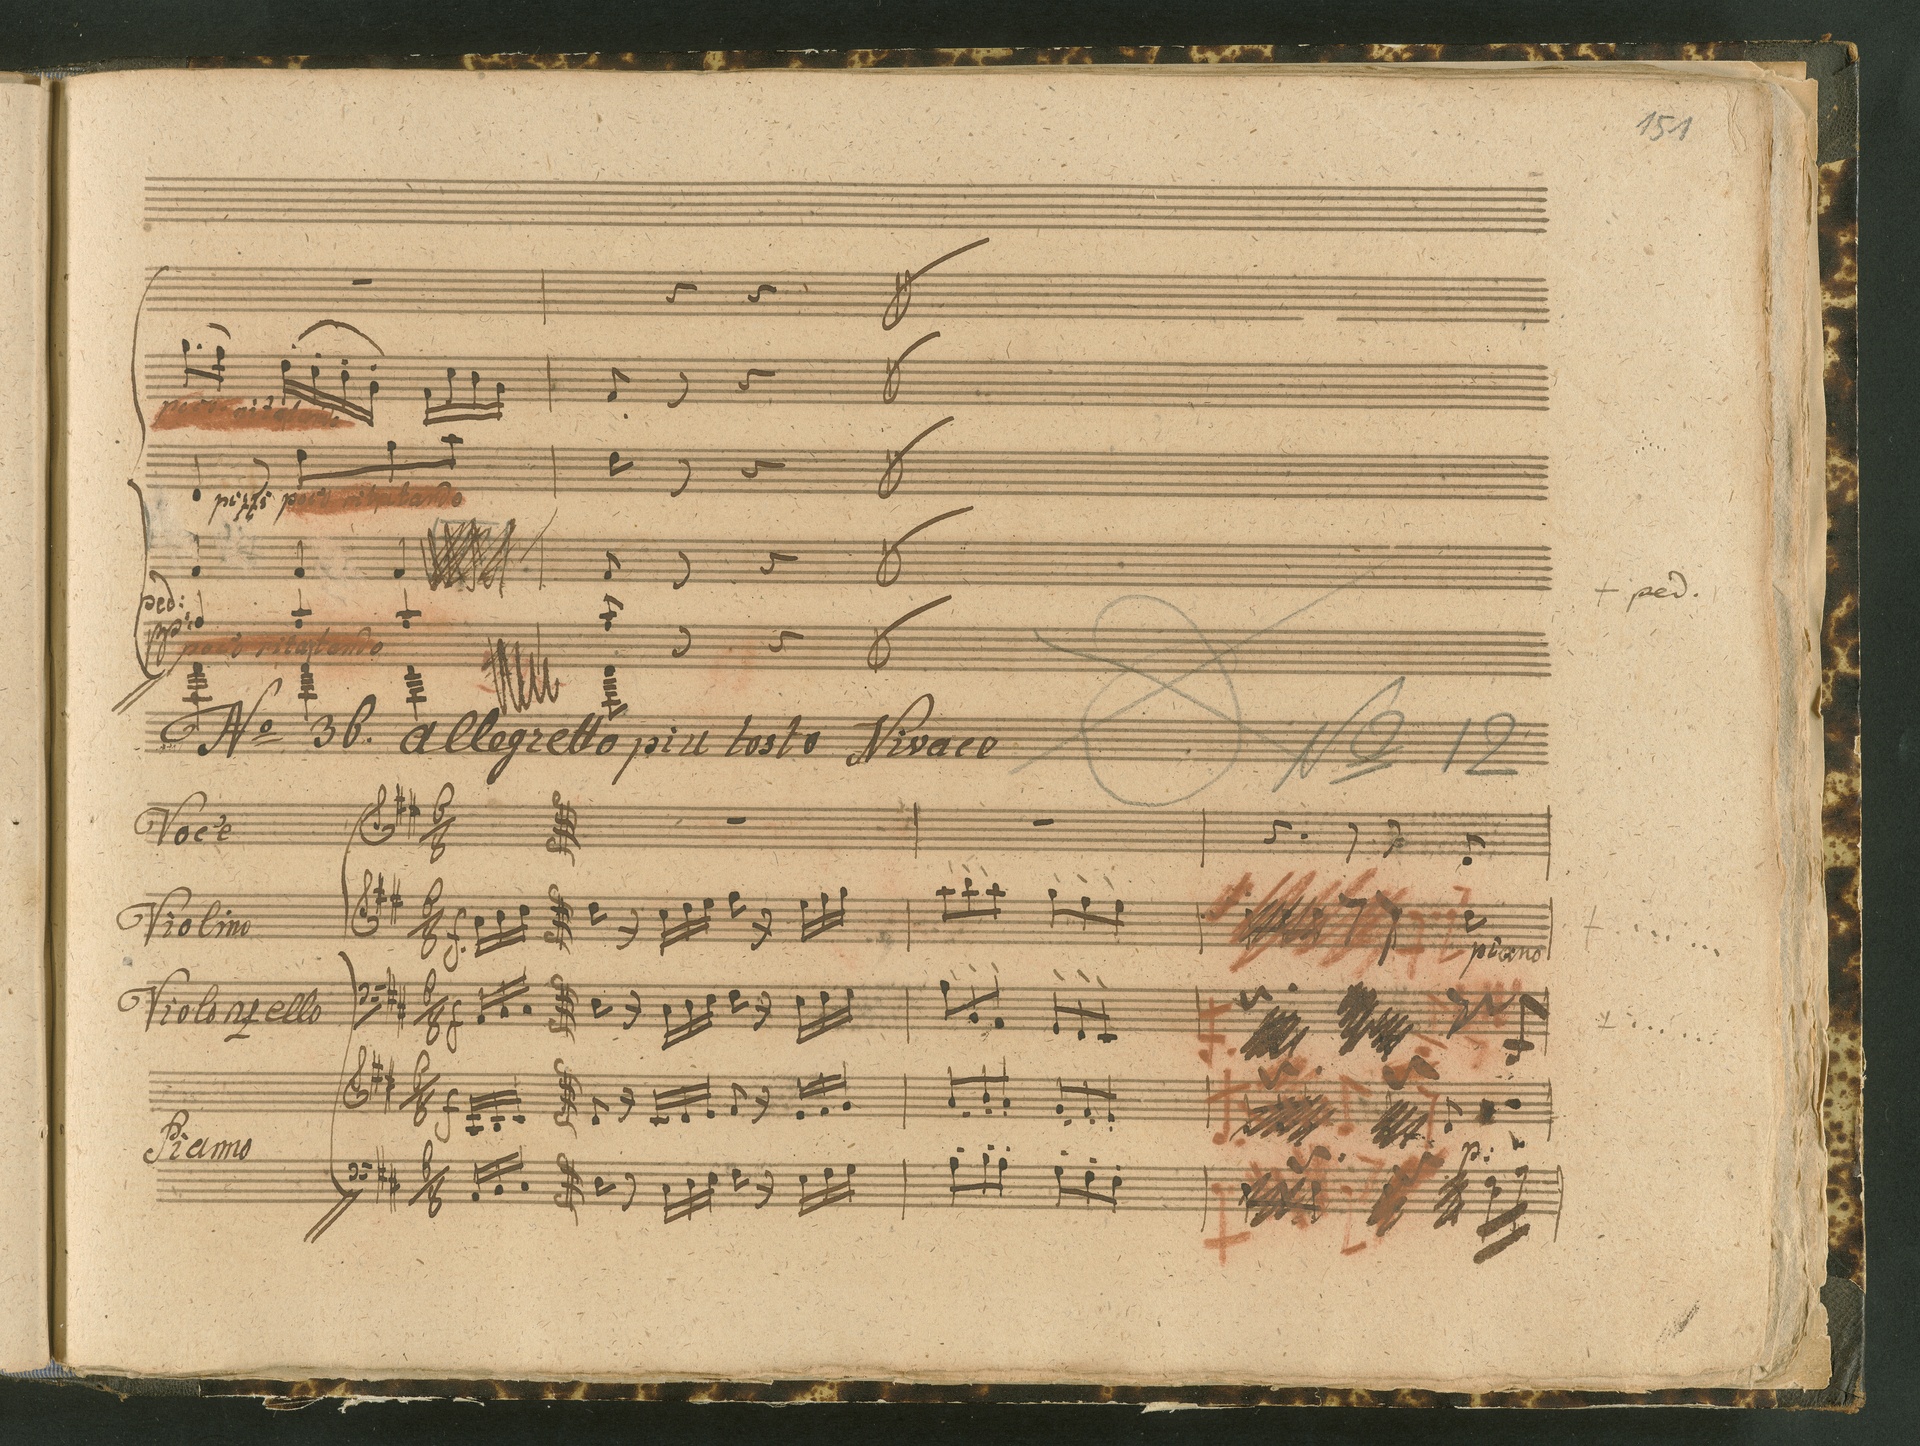 151
poco ritartando
pizzi poco ritartando
ped:
pp:
+ ped.
poco ritartando
No 36. allegretto piu tosto Vivace
No 12
Voce
6
8
Violino
6
8
f.
piano
Violonzello
6
8
f
Piano
6
8
f
p:
6
8